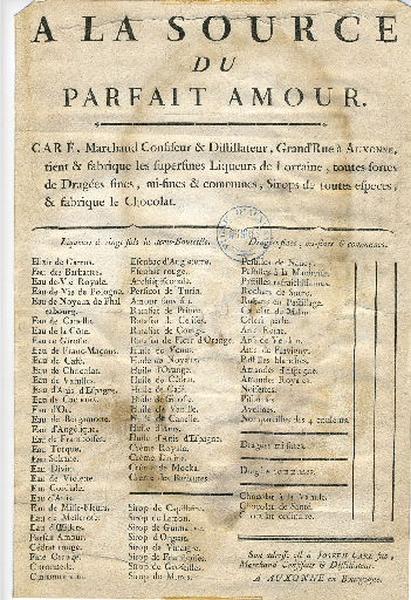 A LA SOURCE
DU
PARFAIT AMOUR.
CARÉ, Marchand Confiseur & Distillateur, Grand'Rue à AUXONNE,
tient & fabrique les superfines Liqueurs de Lorraine, toutes sortes
de Dragées fines, mi-fines & communes, Sirops de toutes especes,
& fabrique le Chocolat.
Liqueurs à vingt sols la demi-Bouteille.
Elixir de Garus.
Eau des Barbades.
Eau de Vie Royale.
Eau de Vie de Pologne.
Eau de Noyaux de Phal
sbourg.
Eau de Canelle.
Eau de la Côte.
Eau de Girofle.
Eau de Franc-Maçons.
Eau de Café.
Eau de Chocolat.
Eau de Vanilles.
Eau d'Anis d'Espagne.
Eau de
Eau d'Or.
Eau de Bergamotte.
Eau d'Angélique.
Eau de Framboises.
Eau Turque.
Eau
Eau Divine
Eau de Violette.
Eau Cordiale.
Eau d'Anis.
Eau de Mille-Fleurs.
Eau de
Eau d'Œillets.
Parfait Amour.
Cédrat rouge.
Escubac d'Angleterre.
Escubac rouge.
Persicot de Turin.
Amour sans fin.
Ratafiat de
Ratafiat de Cerises.
Ratafiat de Coings.
Ratafiat de Fleur d'Orange.
Huile de Venus.
Huile de Noyaux.
Huile d'Orange.
Huile de Cédrat.
Huile de Café.
Huile de Girofle.
Huile de Vanille.
Huile de Canelle.
Huile d'Anis.
Huile d'Anis d'Espagne.
Crême Royale.
Crême Divine.
Crême de Mocka.
Crême des Barbades.
Sirop de Capillaire.
Sirop de Limon.
Sirop de Guimauve.
Sirop d'Orgeat.
Sirop de Vinaigre.
Sirop de Framboises.
Sirop de Groseilles.
Sirop de Mures.
Dragées fines, mi-fines & communes.
Pastilles de Nancy.
Pastilles à la
Pastilles rafraîchissantes.
Anis de Verdun.
Anis de Flavigny.
blanches.
Amandes d'Espagne.
Amandes Royales.
Noisettes.
Pistaches.
Avelines.
Nompareilles des 4 couleurs.
Dragées mi-fines.
Dragées communes.
Chocolat à la Vanille.
Chocolat de Santé.
Chocolat ordinaire.
Son adresse est à JOSEPH CARÉ fils,
Marchand Confiseur & Distillateur.
A AUXONNE en Bourgogne.